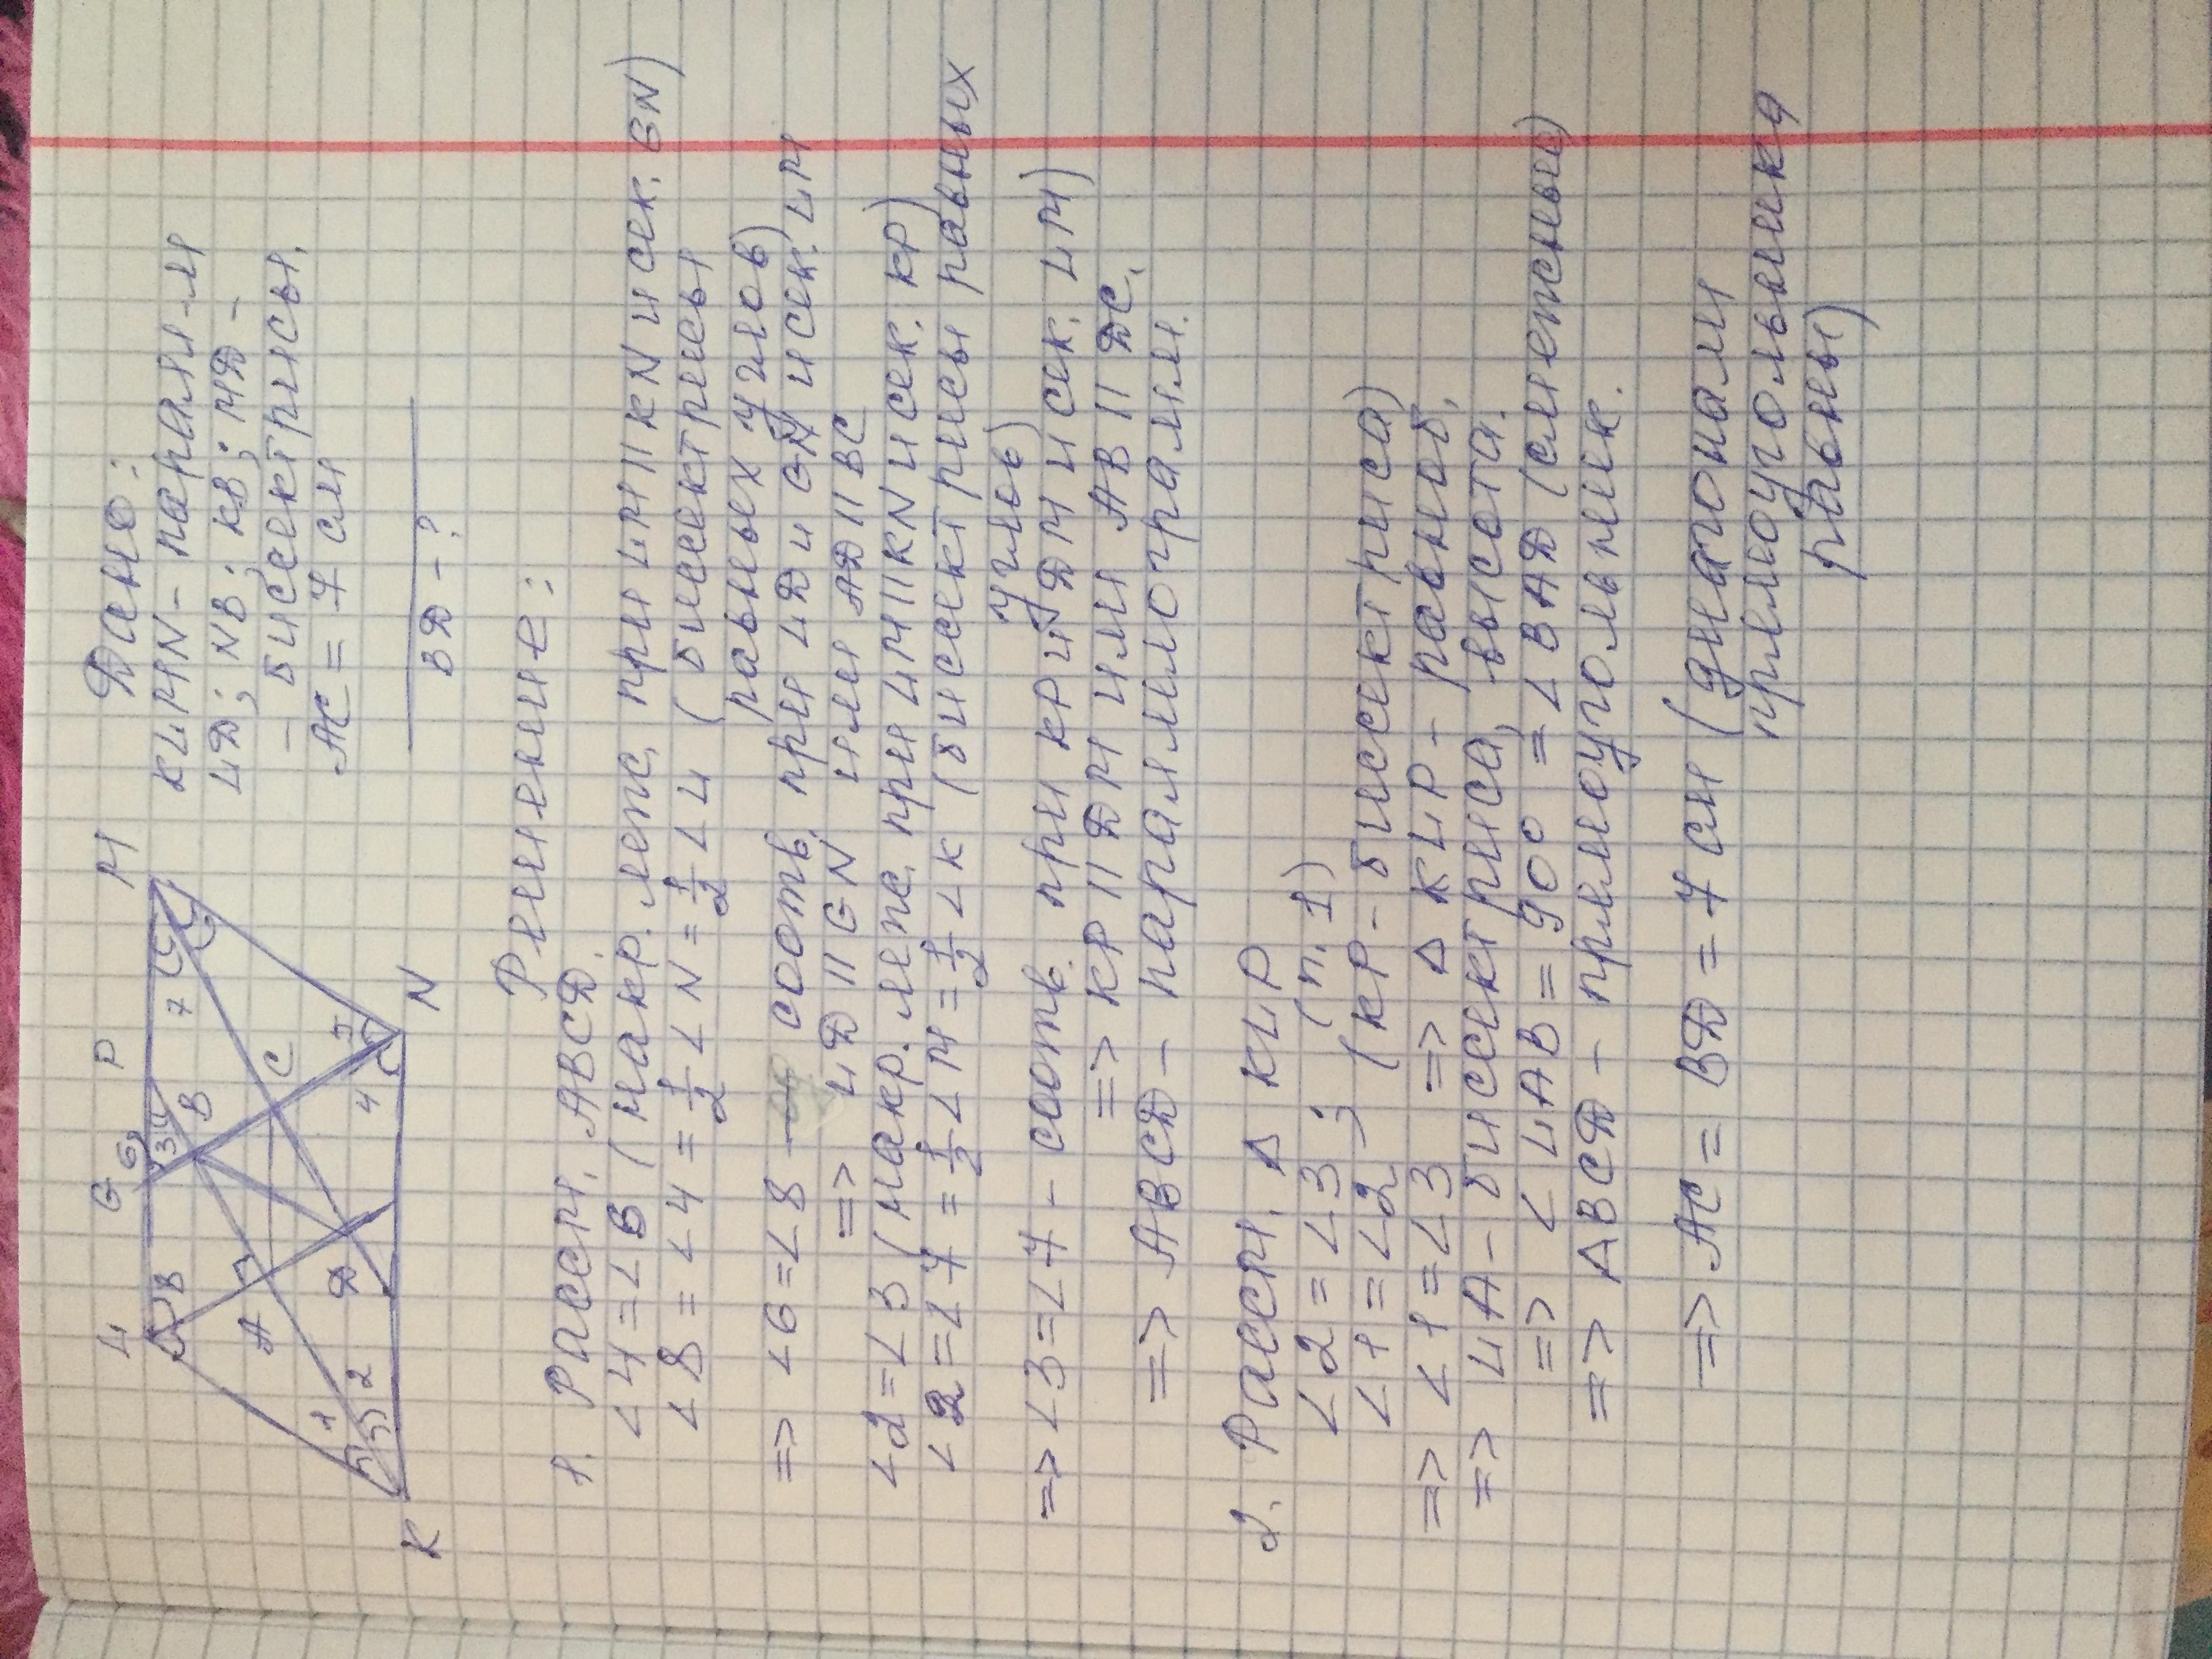 L G P M
8 6 3 7
B
A C
Д
1 2 4 5
K N
Дано:
KLMN - паралл-м
LД; NB; KB; MД -
- биссектрисы.
AC = 7 см
BД - ?
Решение:
1. Рассм. ABCД.
∠4 = ∠6 (накр. леж. при LM || KN и сек. GN)
∠8 = ∠4 = 1/2 ∠N = 1/2 ∠L (биссектрисы
равных углов)
=> ∠6 = ∠8 - соотв. при LД и GN и сек. LM
=> LД || GN или AД || BC
∠2 = ∠3 (накр. леж. при LM || KN и сек. KP)
∠2 = ∠7 = 1/2 ∠M = 1/2 ∠K (биссектрисы равных
углов)
=> ∠3 = ∠7 - соотв. при KP и ДM и сек. LM)
=> KP || ДM или AB || ДC.
=> ABCД - параллелограмм.
2. Рассм. Δ KLP
∠2 = ∠3 (п. 1)
∠1 = ∠2 ; (KP - биссектриса)
=> ∠1 = ∠3 => Δ KLP - равноб.
=> LA - биссектриса, высота.
=> ∠LAB = 90° = ∠BAД (смежные)
=> ABCД - прямоугольник.
=> AC = BД = 7 см (диагонали
прямоугольника
равны)